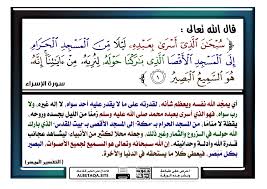 قال الله تعالى :
سُبْحَٰنَ ٱلَّذِىٓ أَسْرَىٰ بِعَبْدِهِۦ لَيْلًا مِّنَ ٱلْمَسْجِدِ ٱلْحَرَامِ
إِلَى ٱلْمَسْجِدِ ٱلْأَقْصَا ٱلَّذِى بَٰرَكْنَا حَوْلَهُۥ لِنُرِيَهُۥ مِنْ ءَايَٰتِنَآ إِنَّهُۥ
هُوَ ٱلسَّمِيعُ ٱلْبَصِيرُ ١
سورة الإسراء
يمجد الله نفسه ويعظم شأنه، لقدرته على ما لا يقدر عليه أحد سواه، لا إله غيره، ولا
رب سواه، فهو الذي أسرى بعبده محمد صلى الله عليه وسلم زمنًا من الليل بجسده وروحه،
يقظة لا منامًا، من المسجد الحرام بـ مكة إلى المسجد الأقصى بـ بيت المقدس الذي بارك
الله حوله في الزروع والثمار وغير ذلك، وجعله محلا لكثير من الأنبياء؛ ليشاهد عجائب
قدرة الله وأدلة وحدانيته. إن الله سبحانه وتعالى هو السميع لجميع الأصوات، البصير
بكل مبصر، فيعطي كلا ما يستحقه في الدنيا والآخرة.
[ التفسير الميسر ]
ALBETAQA.SITE